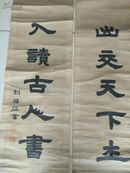 出交天下士
入讀古人書
劉